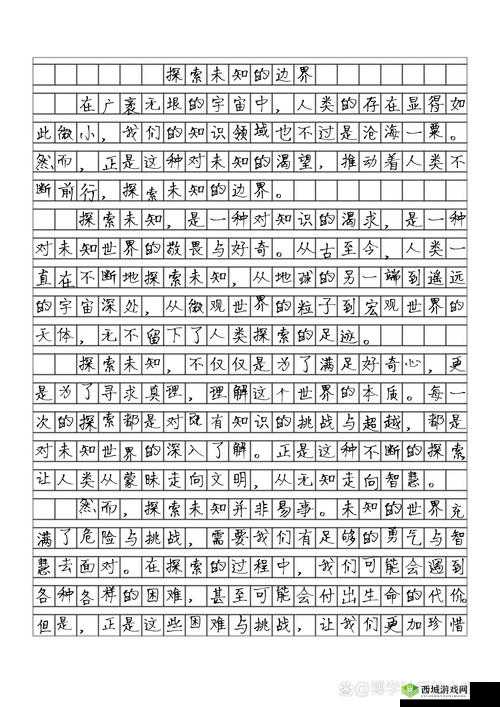 探索未知的边界
在广袤无垠的宇宙中，人类的存在显得如
此微小，我们的知识领域也不过是沧海一粟。
然而，正是这种对未知的渴望，推动着人类不
断前行，探索未知的边界。
探索未知，是一种对知识的渴求，是一种
对未知世界的敬畏与好奇。从古至今，人类一
直在不断地探索未知，从地球的另一端到遥远
的宇宙深处，从微观世界的粒子到宏观世界的
天体，无不留下了人类探索的足迹。
探索未知，不仅仅是为了满足好奇心，更
是为了寻求真理，理解这个世界的本质。每一
次的探索都是对既有知识的挑战与超越，都是
对未知世界的深入了解。正是这种不断的探索
让人类从蒙昧走向文明，从无知走向智慧。
然而，探索未知并非易事。未知的世界充
满了危险与挑战，需要我们有足够的勇气与智
慧去面对。在探索的过程中，我们可能会遇到
各种各样的困难，甚至可能会付出生命的代价。
但是，正是这些困难与挑战，让我们更加珍惜
西城游戏网